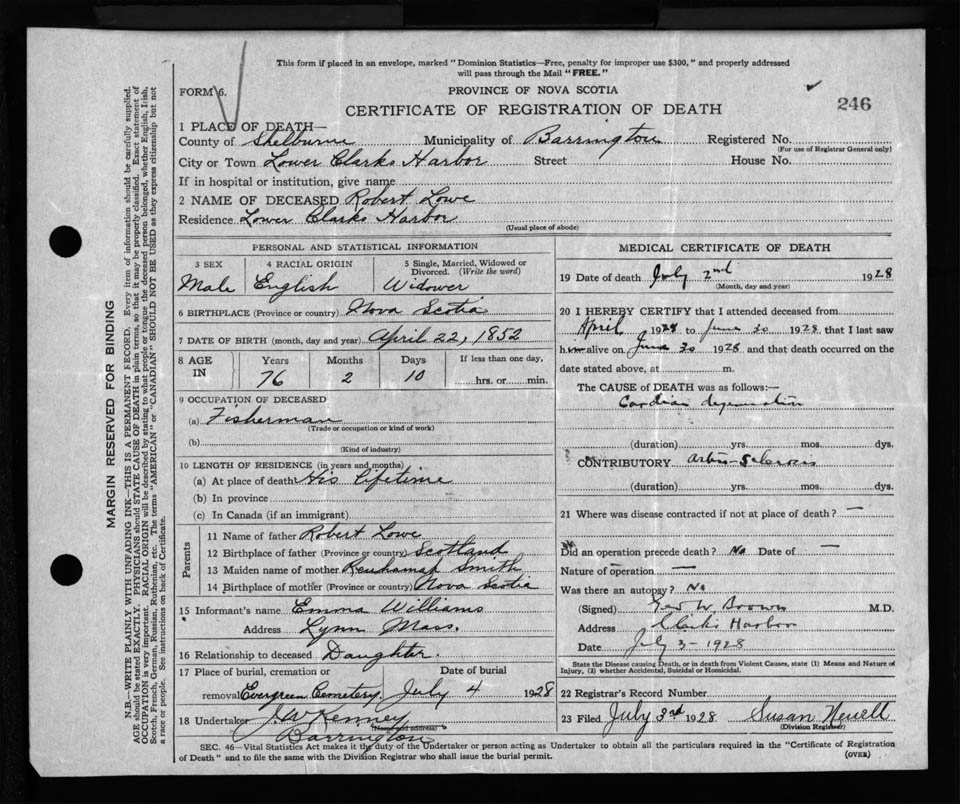 This form if placed in an envelope, marked "Dominion Statistics—Free, penalty for improper use $300," and properly addressed
will pass through the Mail "FREE."
FORM 6.
PROVINCE OF NOVA SCOTIA
CERTIFICATE OF REGISTRATION OF DEATH
246
1 PLACE OF DEATH—
County of Shelburne Municipality of Barrington Registered No.
(For use of Registrar General only)
City or Town Lower Clarks Harbor Street House No.
If in hospital or institution, give name
2 NAME OF DECEASED Robert Lowe
Residence Lower Clarks Harbor
(Usual place of abode)
PERSONAL AND STATISTICAL INFORMATION
3 SEX 4 RACIAL ORIGIN 5 Single, Married, Widowed or
Divorced. (Write the word)
Male English Widower
6 BIRTHPLACE (Province or country) Nova Scotia
7 DATE OF BIRTH (month, day and year) April 22, 1852
8 AGE IN Years Months Days If less than one day,
76 2 10 hrs. or min.
9 OCCUPATION OF DECEASED
(a) Fisherman
(Trade or occupation or kind of work)
(b)
(Kind of industry)
10 LENGTH OF RESIDENCE (in years and months)
(a) At place of death His lifetime
(b) In province
(c) In Canada (if an immigrant)
Parents
11 Name of father Robert Lowe
12 Birthplace of father (Province or country) Scotland
13 Maiden name of mother Smith
14 Birthplace of mother (Province or country) Nova Scotia
15 Informant's name Emma Williams
Address Lynn Mass.
16 Relationship to deceased Daughter.
17 Place of burial, cremation or Date of burial
removal Evergreen Cemetery. July 4 1928
18 Undertaker J.W. Kenney
(Name and address)
Barrington
MEDICAL CERTIFICATE OF DEATH
19 Date of death July 2nd 1928
(Month, day and year)
20 I HEREBY CERTIFY that I attended deceased from
April 1928 to June 30 1928 that I last saw
him alive on June 30 1928 and that death occurred on the
date stated above, at m.
The CAUSE OF DEATH was as follows:—
Cardiac degeneration
(duration) yrs. mos. dys.
CONTRIBUTORY Arterio-Sclerosis
(duration) yrs. mos. dys.
21 Where was disease contracted if not at place of death? —
Did an operation precede death? No Date of —
Nature of operation —
Was there an autopsy? No
(Signed) Geo W Brown M.D.
Address Clarks Harbor
Date July 3-1928
State the Disease causing Death, or in death from Violent Causes, state (1) Means and Nature of
Injury, (2) whether Accidental, Suicidal or Homicidal.
22 Registrar's Record Number
23 Filed July 3rd 1928 Susan Newell
(Division Registrar)
SEC. 46—Vital Statistics Act makes it the duty of the Undertaker or person acting as Undertaker to obtain all the particulars required in the "Certificate of Registration
of Death" and to file the same with the Division Registrar who shall issue the burial permit.
(OVER)
MARGIN RESERVED FOR BINDING
N.B.—WRITE PLAINLY WITH UNFADING INK—THIS IS A PERMANENT RECORD. Every item of information should be carefully supplied.
AGE should be stated EXACTLY. PHYSICIANS should STATE CAUSE OF DEATH in plain terms, so that it may be properly classified. Exact statement of
OCCUPATION is very important. RACIAL ORIGIN will be described by stating to what people or tongue the deceased person belonged, whether English, Irish,
Scotch, French, German, Russian, Ruthenian, etc. The terms "AMERICAN" or "CANADIAN" SHOULD NOT BE USED as they express citizenship but not
a race or people. See instructions on back of Certificate.